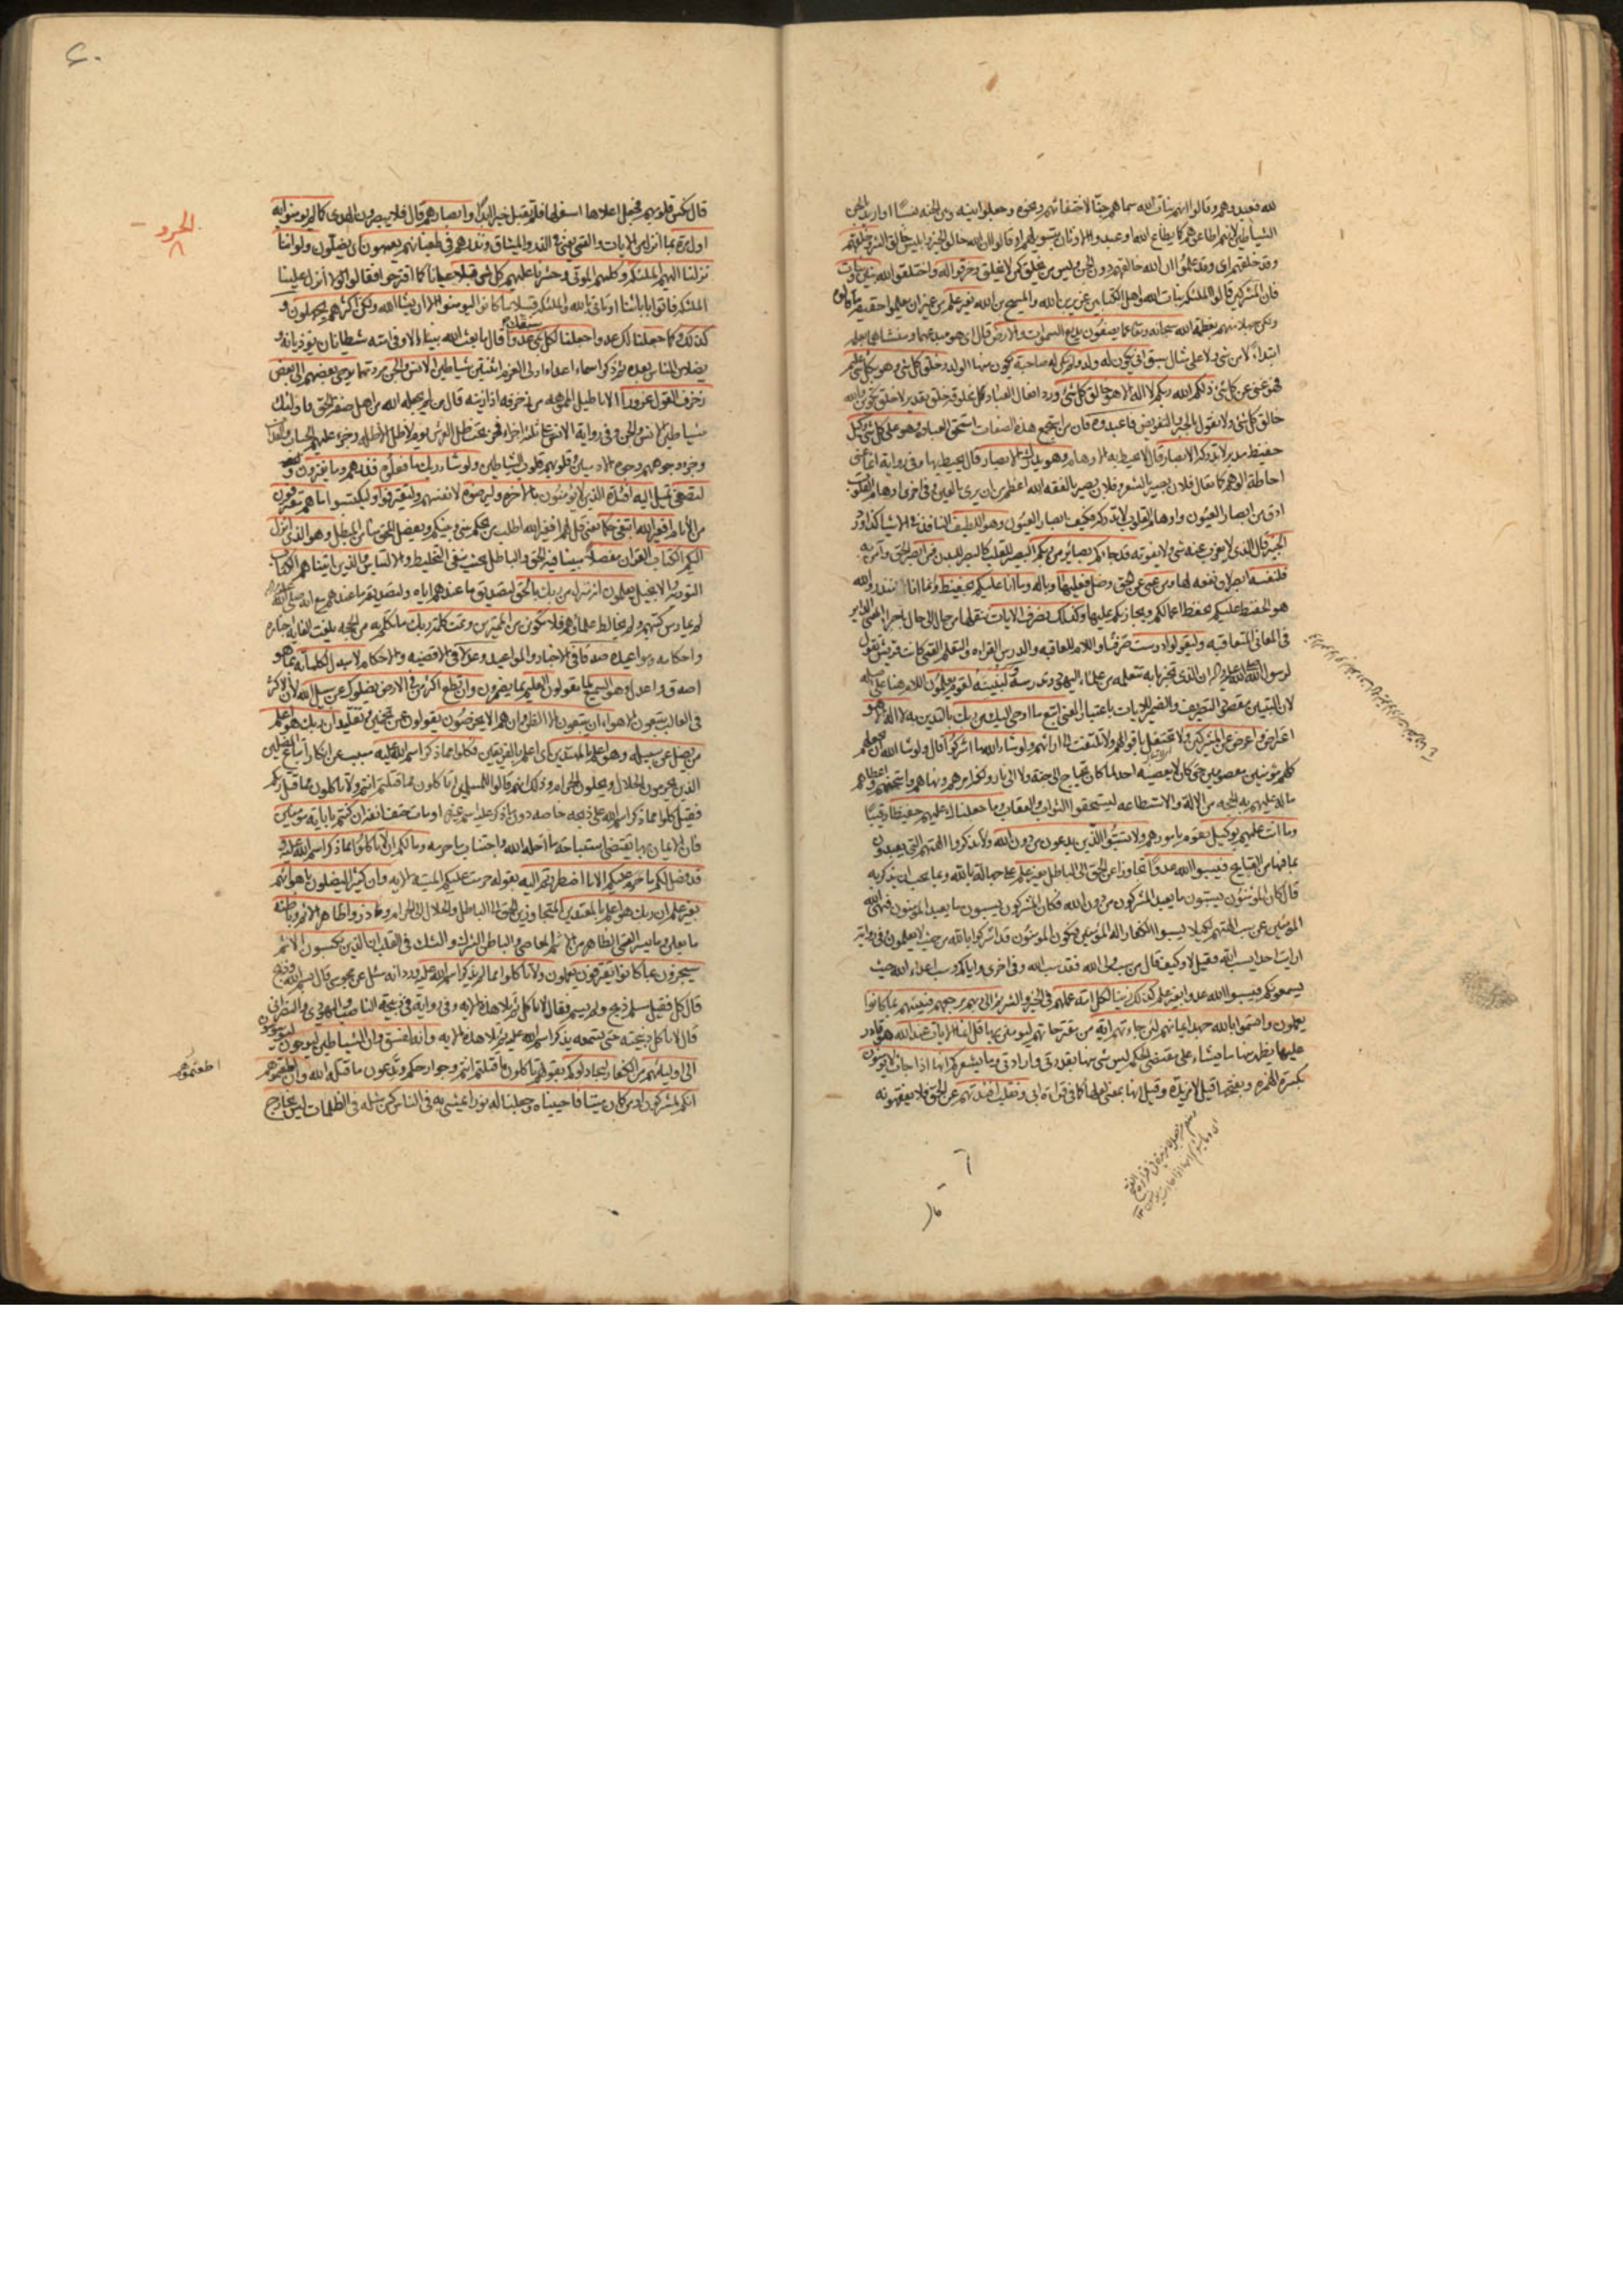 لله فعبدوهم وقالوا انهم بنات الله سماهم جنا لاجتنانهم ونحوه وجعلوا بينه وبين الجنة نسبا او اريد بالجن
الشياطين لانهم اطاعوهم كما يطاع الله او عبدوا الاوثان بتسويلهم او قالوا ان الله خالق الخير وابليس خالق الشر وخلقهم
وقد خلقهم اى وقد علموا ان الله خالقهم دون الجن وليس من يخلق كمن لا يخلق وخرقوا له واختلقوا لله بنين وبنات
فان المشركين قالوا الملئكة بنات الله واهل الكتابين عزير بن الله والمسيح بن الله بغير علم من غير ان علموا حقيقة ما قالوه
ولكن جهلا منهم بعظمة الله سبحانه وتعالى عما يصفون بديع السموات والارض قال اى هو مبدعهما ومنشئهما بعلمه
ابتداء لا من شئ ولا على مثال سبق انى يكون له ولد ولم يكن له صاحبة يكون منها الولد وخلق كل شئ وهو بكل شئ عليم
فهو غنى عن كل شئ ذلكم الله ربكم لا اله الا هو خالق كل شئ ورد افعال العباد كلها مخلوقة خلق تقدير لا خلق تكوين والله
خالق كل شئ ولا نقول بالجبر والتفويض فاعبدوه فان من استجمع هذه الصفات استحق العبادة وهو على كل شئ وكيل
حفيظ مدبر لا تدركه الابصار قال لا تحيط به الاوهام وهو يدرك الابصار قال يحيط بها وفى رواية انما عنى
احاطة الوهم كما يقال فلان بصير بالشعر وفلان بصير بالفقه الله اعظم من ان يرى بالعين وفى اخرى اوهام القلوب
ادق من ابصار العيون واوهام القلوب لا تدركه فكيف ابصار العيون وهو اللطيف النافذ فى الاشياء
الخبير قال الذى لا يعزب عنه شئ ولا يفوته قد جاءكم بصائر من ربكم البصيرة للقلب كالبصر للبدن فمن ابصر الحق وآمن به
فلنفسه ابصر لان نفعه لها ومن عمى عن الحق وضل فعليها وباله وما انا عليكم بحفيظ وانما انا منذر والله
هو الحفيظ عليكم يحفظ اعمالكم ويجازيكم عليها وكذلك نصرف الايات ننقلها من حال الى حال
فى المعانى المتعاقبة وليقولوا درست صرفنا واللام للعاقبة والدرس القراءة والتعلم القمى كانت قريش تقول
لرسول الله صلى الله عليه وآله ان الذى تخبرنا به تتعلمه من علماء اليهود وتدرسه ولنبينه لقوم يعلمون اللام هنا على اصله
لان التبيين مقصود التصريف والضمير للايات باعتبار المعنى اتبع ما اوحى اليك من ربك بالتدين به لا اله الا هو
اعتراض واعرض عن المشركين ولا تحتفل باقوالهم ولا تلتفت الى ارائهم ولو شاء الله ما اشركوا قال ولو شاء الله ان يجعلهم
كلهم مؤمنين معصومين حتى كان لا يعصيه احد لما كان يحتاج الى جنة ولا الى نار ولكنه امرهم ونهاهم وامتحنهم واعطاهم
ما له عليهم به الحجة من الالة والاستطاعة ليستحقوا الثواب والعقاب وما جعلناك عليهم حفيظا رقيبا
وما انت عليهم بوكيل بقوم بامورهم ولا تسبوا الذين يدعون من دون الله ولا تذكروا الهتهم التى يعبدون
بما فيها من القبايح فيسبوا الله عدوا تجاوزا عن الحق الى الباطل بغير علم على جهالة بالله وما يجب ان يذكر به
قال كان المؤمنون يسبون ما يعبد المشركون من دون الله فكان المشركون يسبون ما يعبد المؤمنون فنهى الله
المؤمنين عن سب الهتهم لكيلا يسبوا الكفار اله المؤمنين فيكون المؤمنون قد اشركوا بالله من حيث لا يعلمون وفى رواية
ارايت احدا يسب الله فقيل لا وكيف قال من سب ولى الله فقد سب الله وفى اخرى واياكم وسب اعداء الله حيث
يسمعونكم فيسبوا الله عدوا بغير علم كذلك زينا لكل امة عملهم فى الخير والشر ثم الى ربهم مرجعهم فينبئهم بما كانوا
يعملون واقسموا بالله جهد ايمانهم لئن جاءتهم اية من مقترحاتهم ليؤمنن بها قل انما الايات عند الله هو قادر
عليها يظهر منها ما يشاء على مقتضى الحكمة ليس شئ منها بقدرتى وارادتى وما يشعركم انها اذا جاءت لا يؤمنون
بكسر الهمزة وبفتحها قيل لا مزيدة وقيل انها بمعنى لعلها كما فى قراءة ابى ونقلب افئدتهم عن الحق فلا يفقهونه
قال
٦٠
الحزو
٨
قال نكس قلوبهم فيجعل اعلاها اسفلها فلا تقبل خيرا ابدا وابصارهم قال فلا يبصرون الهدى كما لم يؤمنوا به
اول مرة بما انزل من الايات والقمى يعنى فى الذر والميثاق ونذرهم فى طغيانهم يعمهون اى يضلون ولو اننا
نزلنا اليهم الملئكة وكلمهم الموتى وحشرنا عليهم كل شئ قبلا عيانا كما اقترحوا فقالوا لولا انزل علينا
الملئكة فاتوا بابائنا او تاتى بالله والملئكة قبيلا ما كانوا ليؤمنوا الا ان يشاء الله ولكن اكثرهم يجهلون و
كذلك وكما جعلنا لك عدوا جعلنا لكل نبى سبقك عدوا قال ما بعث الله نبيا الا وفى امته شيطانان يؤذيانه و
يضلان الناس بعده ثم ذكر اسماء اعداء اولى العزم اثنين اثنين شياطين الانس والجن مردتهما يوحى بعضهم الى بعض
زخرف القول غرورا الاباطيل المموهة من زخرفه اذا زينه قال من لم يجعله الله من اهل صفة الحق فاولئك
شياطين الانس والجن وفى رواية الانس على ثلثة اجزاء فجزء تحت ظل العرش يوم لا ظل الا ظله وجزء عليهم الحساب والعذاب
وجزء وجوههم وجوه الادميين وقلوبهم قلوب الشياطين ولو شاء ربك ما فعلوه فذرهم وما يفترون وكفرهم
لتصغى تميل اليه افئدة الذين لا يؤمنون بالاخرة وليرضوه لانفسهم وليقترفوا وليكتسبوا ما هم مقترفون
من الاثام افغير الله ابتغى حكما يعنى قل لهم افغير الله اطلب من يحكم بينى وبينكم ويفصل المحق منا من المبطل وهو الذى انزل
اليكم الكتاب القران مفصلا مبينا فيه الحق والباطل بحيث ينفى التخليط والالتباس والذين اتيناهم الكتاب
التورية والانجيل يعلمون انه منزل من ربك بالحق لتصديق ما عندهم اياه ولتصديقه ما عندهم مع انه صلى الله عليه وآله
لم يمارس كتبهم ولم يخالط علماءهم فلا تكونن من الممترين وتمت كلمة ربك ما تكلم به من الحجة بلغت الغاية اخباره
واحكامه ومواعيده صدقا فى الاخبار والمواعيد وعدلا فى الاقضية والاحكام لا مبدل لكلماته بما هو
اصدق واعدل وهو السميع لما يقولون العليم بما يضمرون وان تطع اكثر من فى الارض يضلوك عن سبيل الله لان الاكثر
فى الغالب يتبعون الاهواء ان يتبعون الا الظن وان هم الا يخرصون يقولون عن تخمين وتقليد ان ربك هو اعلم
من يضل عن سبيله وهو اعلم بالمهتدين باى اعلم بالفريقين فكلوا مما ذكر اسم الله عليه مسبب عن انكار اتباع المضلين
الذين يحرمون الحلال ويحلون الحرام وذلك انهم قالوا للمسلمين اتاكلون مما قتلتم انتم ولا تاكلون مما قتل ربكم
فقيل كلوا مما ذكر اسم الله على ذبحه خاصة دون ما ذكر عليه اسم غيره او مات حتف انفه ان كنتم باياته مؤمنين
فان الايمان بها يقتضى استباحة ما احله الله واجتناب ما حرمه وما لكم ان لا تاكلوا مما ذكر اسم الله عليه و
قد فصل لكم ما حرم عليكم الا ما اضطررتم اليه بقوله حرمت عليكم الميتة الاية وان كثيرا ليضلون باهوائهم
بغير علم ان ربك هو اعلم بالمعتدين المتجاوزين الحق الى الباطل والحلال الى الحرام وذروا ظاهر الاثم وباطنه
ما يعلن وما يسر القمى الظاهر من الاثم المعاصى والباطن الشرك والشك فى القلب ان الذين يكسبون الاثم
سيجزون بما كانوا يقترفون يعملون ولا تاكلوا مما لم يذكر اسم الله عليه ورد انه سئل عن مجوسى قال بسم الله وذبح
قال كل فقيل مسلم ذبح ولم يسم فقال لا تاكل ثم تلا هذه الاية وفى رواية فى ذبيحة الناصب واليهودى والنصرانى
قال لا تاكل ذبيحته حتى تسمعه يذكر اسم الله عليه ثم تلا هذه الاية وانه لفسق وان الشياطين ليوحون ليوسوسون
الى اوليائهم من الكفار ليجادلوكم بقولهم تاكلون ما قتلتم انتم وجوارحكم وتدعون ما قتله الله وان اطعتموهم
اطعتموهم
انكم لمشركون او من كان ميتا فاحييناه وجعلنا له نورا يمشى به فى الناس كمن مثله فى الظلمات ليس بخارج